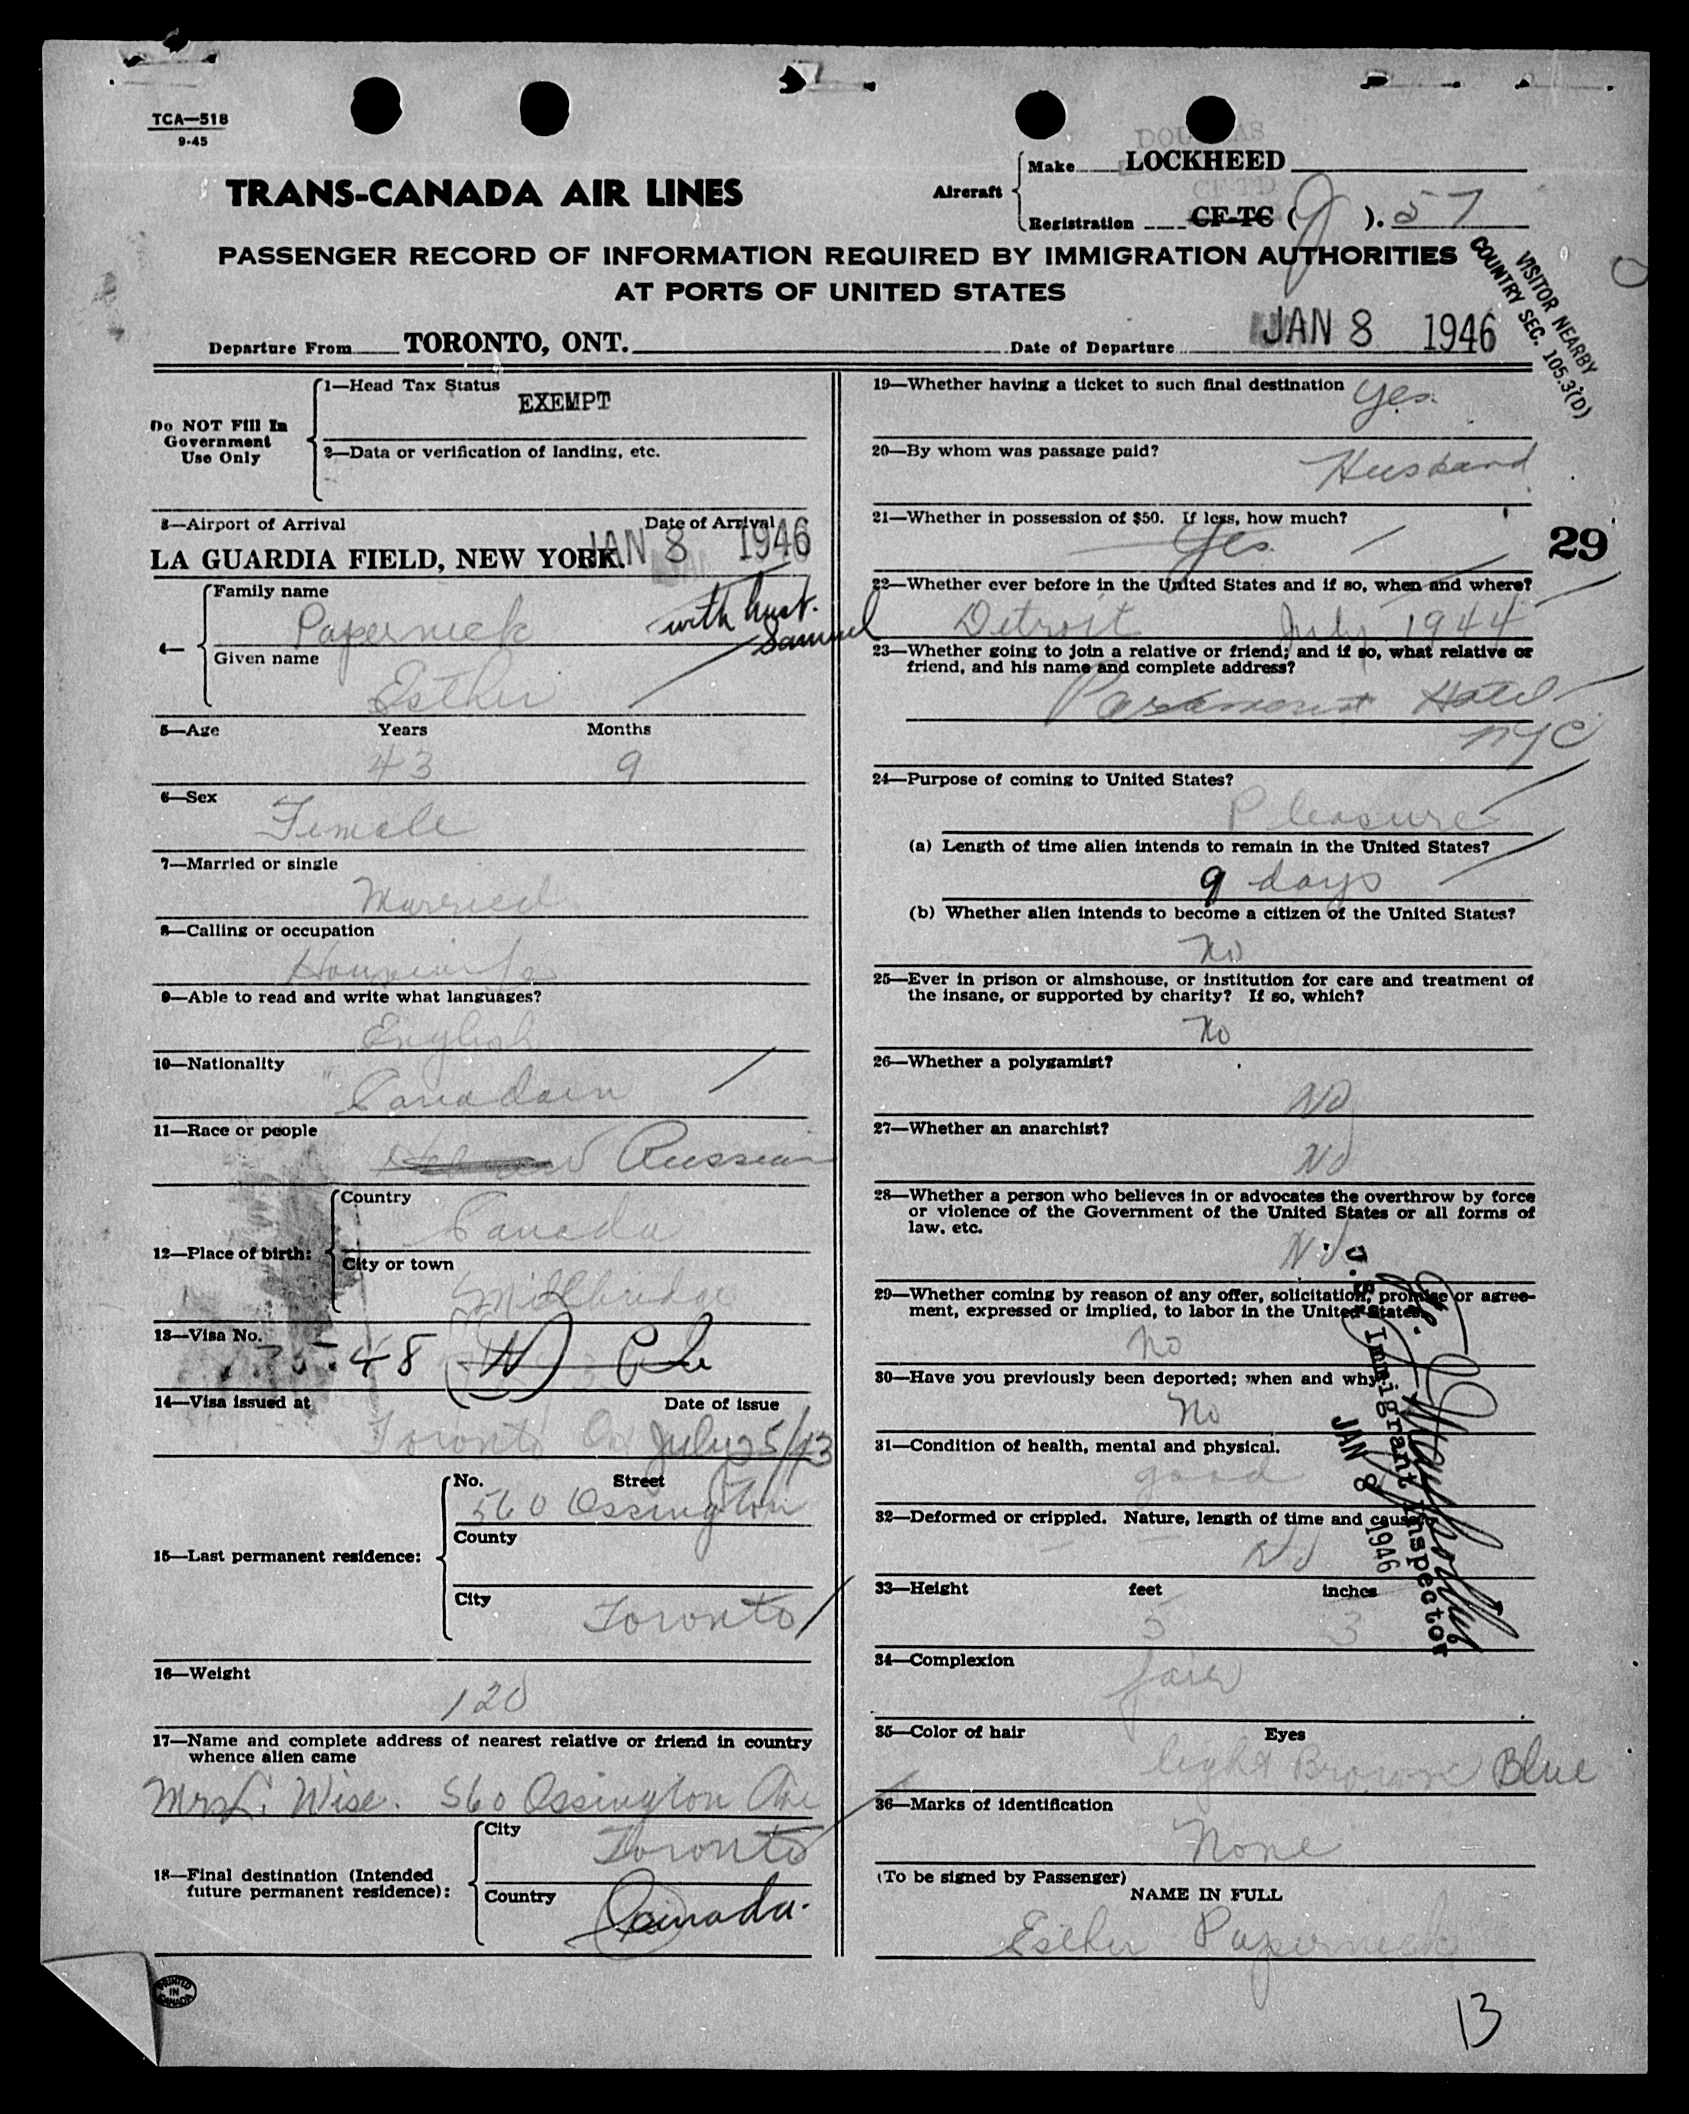 TCA—518
9-45
DOUGLAS
Make LOCKHEED
TRANS-CANADA AIR LINES
Aircraft
CF-TD
Registration CF-TC ( ). 57
PASSENGER RECORD OF INFORMATION REQUIRED BY IMMIGRATION AUTHORITIES
AT PORTS OF UNITED STATES
VISITOR NEARBY
COUNTRY SEC. 105.3(D)
Departure From TORONTO, ONT.
Date of Departure JAN 8 1946
Do NOT Fill In
Government
Use Only
1—Head Tax Status
EXEMPT
2—Data or verification of landing, etc.
3—Airport of Arrival Date of Arrival
LA GUARDIA FIELD, NEW YORK. JAN 8 1946
4—
Family name
Papernick with husb.
Samuel
Given name
Esther
5—Age Years Months
43 9
6—Sex
Female
7—Married or single
Married
8—Calling or occupation
Housewife
9—Able to read and write what languages?
English
10—Nationality
Canadain
11—Race or people
Hebrew Russian
12—Place of birth:
Country
Canada
City or town
Millbridge
13—Visa No.
48
14—Visa issued at Date of issue
Toronto Ont July 25/43
15—Last permanent residence:
No. Street
560 Ossington
County
City
Toronto
16—Weight
120
17—Name and complete address of nearest relative or friend in country
whence alien came
Mrs L. Wise. 560 Ossington Ave
18—Final destination (Intended
future permanent residence):
City
Toronto
Country
Canada.
PRINTED
IN
CANADA
19—Whether having a ticket to such final destination yes.
20—By whom was passage paid?
Husband
21—Whether in possession of $50. If less, how much?
Yes.
29
22—Whether ever before in the United States and if so, when and where?
Detroit July 1944
23—Whether going to join a relative or friend; and if so, what relative or
friend, and his name and complete address?
Paramount Hotel
NYC
24—Purpose of coming to United States?
Pleasure
(a) Length of time alien intends to remain in the United States?
9 days
(b) Whether alien intends to become a citizen of the United States?
No
25—Ever in prison or almshouse, or institution for care and treatment of
the insane, or supported by charity? If so, which?
No
26—Whether a polygamist?
No
27—Whether an anarchist?
No
28—Whether a person who believes in or advocates the overthrow by force
or violence of the Government of the United States or all forms of
law, etc.
No
29—Whether coming by reason of any offer, solicitation, promise or agree-
ment, expressed or implied, to labor in the United States
No
30—Have you previously been deported; when and why?
No
31—Condition of health, mental and physical.
good
32—Deformed or crippled. Nature, length of time and cause
No
U.S. Immigrant Inspector
JAN 8 1946
33—Height feet inches
5 3
34—Complexion
fair
35—Color of hair Eyes
light Brown Blue
36—Marks of identification
None
(To be signed by Passenger)
NAME IN FULL
Esther Papernick
13